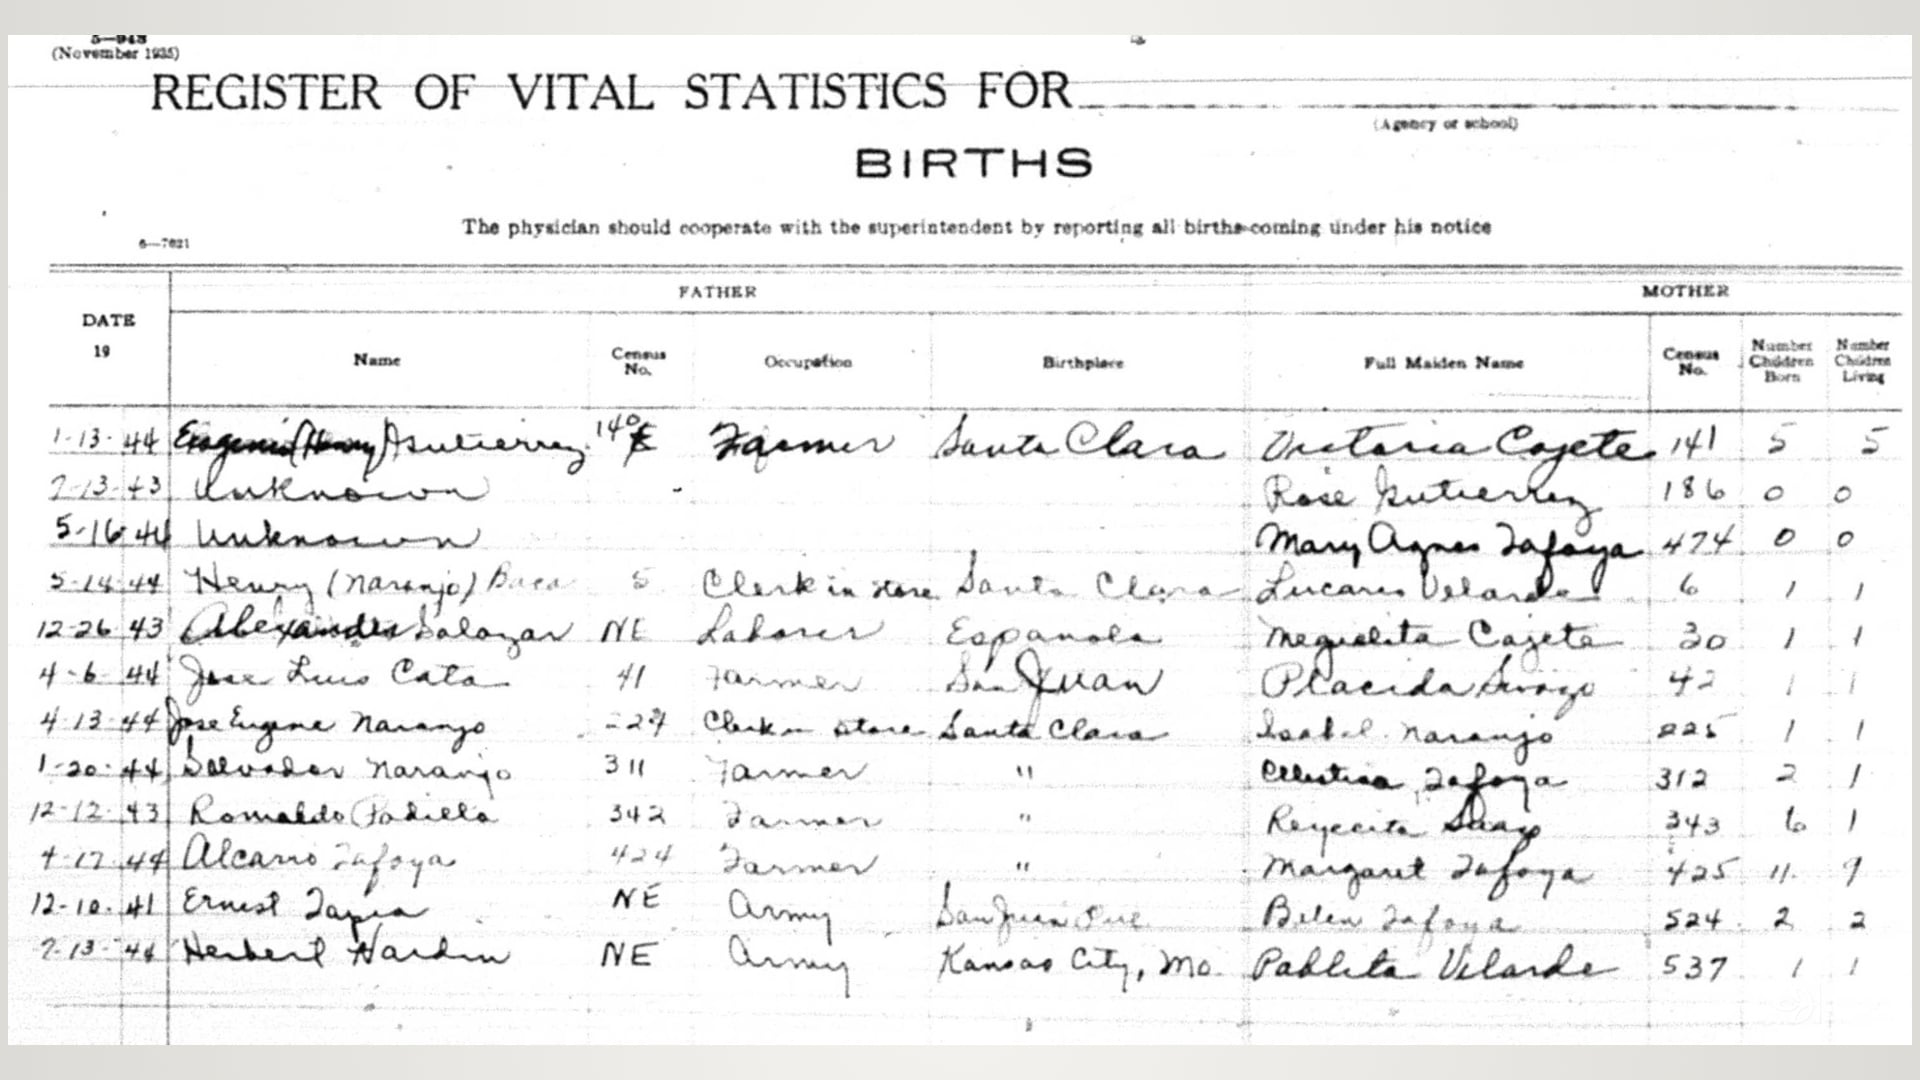 5—943
(November 1935)
REGISTER OF VITAL STATISTICS FOR
(Agency or school)
BIRTHS
The physician should cooperate with the superintendent by reporting all births coming under his notice
6—7621
FATHER MOTHER
DATE 19 Name Census No. Occupation Birthplace Full Maiden Name Census No. Number Children Born Number Children Living
1-13-44 Eugenio (Henry) Gutierrez 140 Farmer Santa Clara Victoria Cajete 141 5 5
7-13-43 Unknown Rose Gutierrez 186 0 0
5-16-44 Unknown Mary Agnes Tafoya 474 0 0
5-14-44 Henry (Naranjo) Baca 5 Clerk in store Santa Clara Velarde 6 1 1
12-26-43 Alexander Salazar NE Laborer Espanola Cajete 30 1 1
4-6-44 Jose Luis Cata 41 Farmer San Juan Placida 42 1 1
4-13-44 Jose Eugene Naranjo 224 Clerk in store Santa Clara Isabel Naranjo 225 1 1
1-20-44 Salvador Naranjo 311 Farmer " Celestina Tafoya 312 2 1
12-12-43 Romaldo Padilla 342 Farmer " Reyecita 343 6 1
4-17-44 Alcario Tafoya 424 Farmer " Margaret Tafoya 425 11 9
12-10-41 Ernest Tapia NE Army San Juan Pue. Belen Tafoya 524 2 2
7-13-44 Herbert Hardin NE Army Kansas City, Mo. Pablita Velarde 537 1 1